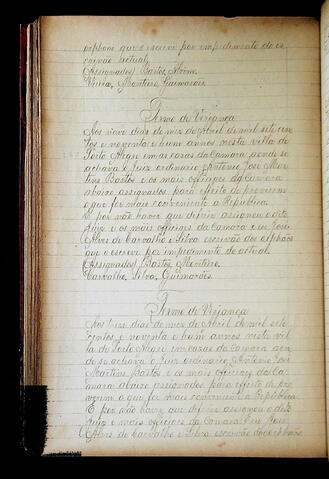 orphãos que o escrevi por impedimento do es
crivão actual.
(Assignados) Bastos,
Vieira, Monteiro, Guimarães
Termo de Verjança
Aos nove dias do mez de Abril de mil sete cen
tos e noventa e hum annos nesta villa de
Porto Alegre em as casas da Camara aonde se
achava o Juiz ordinario Antonio José Mar
tins Bastos e os mais officiaes da Camara
abaixo assignados para effeito de proverem
o que for mais conveniente a Republica.
E por não haver que deferir assignou o dito
Juiz e os mais officiaes da Camara e eu José
Alves de Carvalho e Silva escrivão dos orphãos
que o escrevi por impedimento do actual.
(Assignados) Bastos, Monteiro,
Carvalho, Silva, Guimarães
Termo de Verjança
Aos treze dias do mez de Abril de mil sete
centos e noventa e hum annos nesta vil
la de Porto Alegre em casas da Camara aon
de se achava o Juiz ordinario Antonio José
Martins Bastos e os mais officiaes da Ca
mara abaixo assignados para effeito de pro
verem o que for mais conveniente a Republica
E por não haver que deferir assignou o dito
Juiz e mais officiaes da Camara eu José
Alves de Carvalho e Silva escrivão dos orphãos